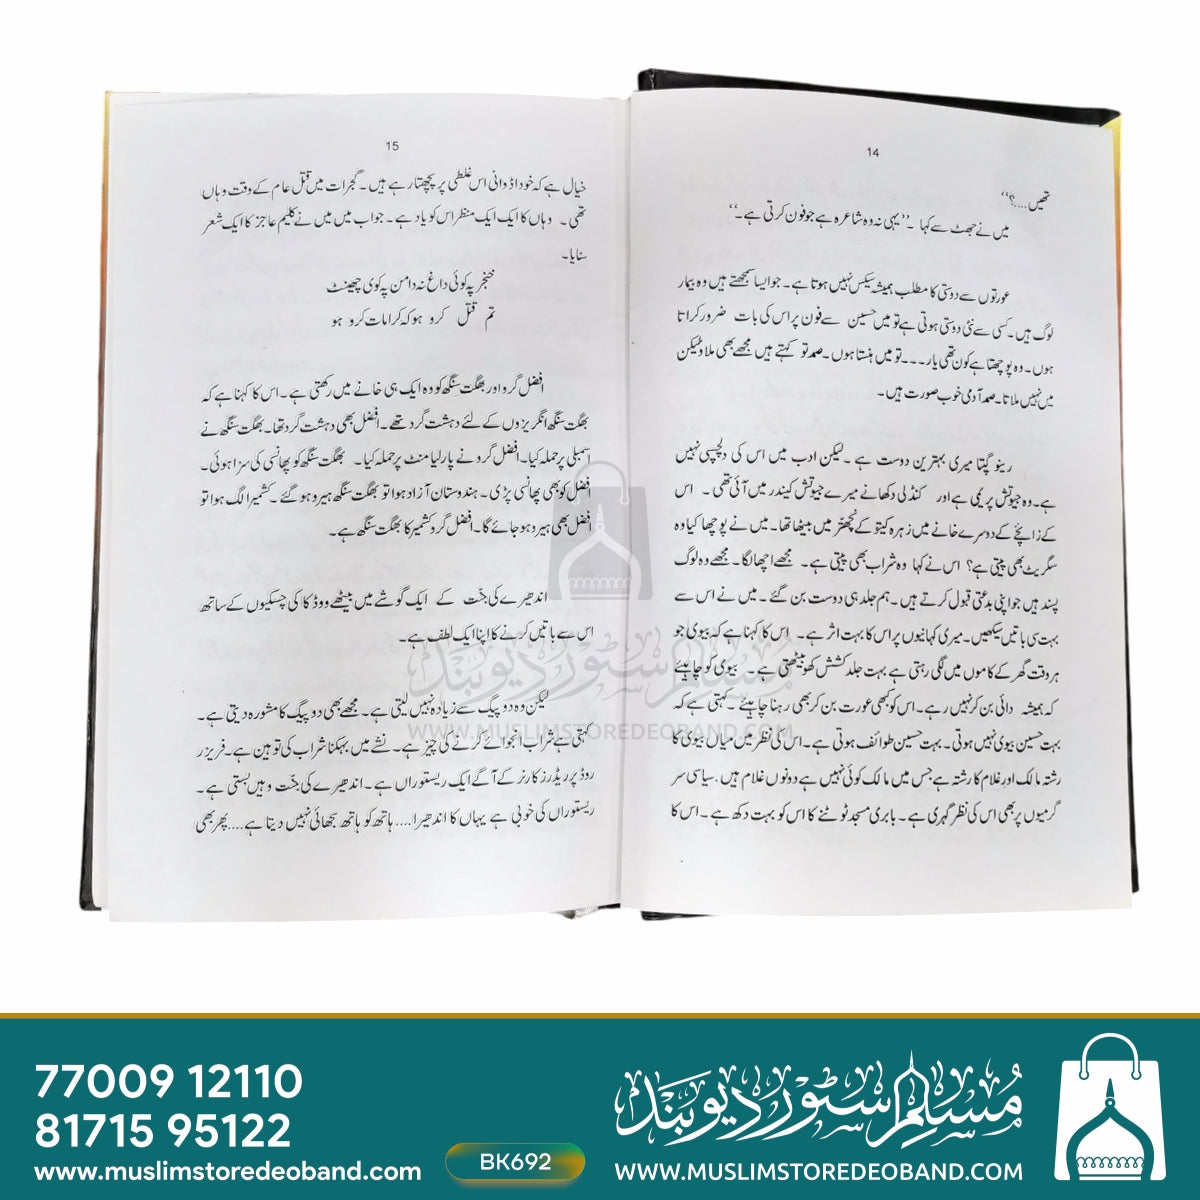 14
تھیں....؟‘‘
میں نے جھٹ سے کہا۔ ’’یہی نہ وہ شاعرہ ہے جو فون کرتی ہے۔‘‘
عورتوں سے دوستی کا مطلب ہمیشہ سیکس نہیں ہوتا ہے۔ جو ایسا سمجھتے ہیں وہ بیمار
لوگ ہیں۔ کسی سے نئی دوستی ہوتی ہے تو میں حسین سے فون پر اس کی بات ضرور کراتا
ہوں۔ وہ پوچھتا ہے کون تھی یار۔۔۔ تو میں ہنستا ہوں۔ صمد تو کہتے ہیں مجھے بھی ملاؤ لیکن
میں نہیں ملاتا۔ صمد آدمی خوب صورت ہیں۔
رینو گپتا میری بہترین دوست ہے۔ لیکن ادب میں اس کی دلچسپی نہیں
ہے۔ وہ جیوتش پریمی ہے اور کنڈلی دکھانے میرے جیوتش کیندر میں آئی تھی۔ اس
کے زائچے کے دوسرے خانے میں زہرہ کیتو کے نچھتر میں بیٹھا تھا۔ میں نے پوچھا کیا وہ
سگریٹ بھی پیتی ہے؟ اس نے کہا وہ شراب بھی پیتی ہے۔ مجھے اچھا لگا۔ مجھے وہ لوگ
پسند ہیں جو اپنی بدعتی قبول کرتے ہیں۔ ہم جلد ہی دوست بن گئے۔ میں نے اس سے
بہت سی باتیں سیکھیں۔ میری کہانیوں پر اس کا بہت اثر ہے۔ اس کا کہنا ہے کہ بیوی جو
ہر وقت گھر کے کاموں میں لگی رہتی ہے بہت جلد کشش کھو بیٹھتی ہے۔ بیوی کو چاہیئے
کہ ہمیشہ دائی بن کر نہیں رہے۔ اس کو کبھی عورت بن کر بھی رہنا چاہیئے۔ کہتی ہے کہ
بہت حسین بیوی نہیں ہوتی۔ بہت حسین طوائف ہوتی ہے۔ اس کی نظر میں میاں بیوی کا
رشتہ مالک اور غلام کا رشتہ ہے جس میں مالک کوئی نہیں ہے دونوں غلام ہیں۔ سیاسی سر
گرمیوں پر بھی اس کی نظر گہری ہے۔ بابری مسجد ٹوٹنے کا اس کو بہت دکھ ہے۔ اس کا
15
خیال ہے کہ خود اڈوانی اس غلطی پر پچھتا رہے ہیں۔ گجرات میں قتل عام کے وقت وہاں
تھی۔ وہاں کا ایک ایک منظر اس کو یاد ہے۔ جواب میں میں نے کلیم عاجز کا ایک شعر
سنایا۔
خنجر پہ کوئی داغ نہ دامن پہ کوی چھینٹ
تم قتل کرو ہو کہ کرامات کرو ہو
افضل گرو اور بھگت سنگھ کو وہ ایک ہی خانے میں رکھتی ہے۔ اس کا کہنا ہے کہ
بھگت سنگھ انگریزوں کے لئے دہشت گرد تھے۔ افضل بھی دہشت گرد تھا۔ بھگت سنگھ نے
اسمبلی پر حملہ کیا۔ افضل گرو نے پارلیامنٹ پر حملہ کیا۔ بھگت سنگھ کو پھانسی کی سزا ہوئی۔
افضل کو بھی پھانسی پڑی۔ ہندوستان آزاد ہوا تو بھگت سنگھ ہیرو ہو گئے۔ کشمیر الگ ہوا تو
افضل بھی ہیرو ہو جائے گا۔ افضل گرو کشمیر کا بھگت سنگھ ہے۔
اندھیرے کی جنّت کے ایک گوشے میں بیٹھے ووڈکا کی چسکیوں کے ساتھ
اس سے باتیں کرنے کا اپنا ایک لطف ہے۔
لیکن وہ دو پیگ سے زیادہ نہیں لیتی ہے۔ مجھے بھی دو پیگ کا مشورہ دیتی ہے۔
کہتی ہے شراب انجوائے کرنے کی چیز ہے۔ نشے میں بہکنا شراب کی توہین ہے۔ فریزر
روڈ پر ریڈرز کارنر کے آگے ایک ریستوراں ہے۔ اندھیرے کی جنّت وہیں بستی ہے۔
ریستوراں کی خوبی ہے یہاں کا اندھیرا.... ہاتھ کو ہاتھ سجھائی نہیں دیتا ہے.... پھر بھی
مسلم سٹور دیوبند
WWW.MUSLIMSTOREDEOBAND.COM
77009 12110
81715 95122
www.muslimstoredeoband.com
BK692
مسلم سٹور دیوبند
WWW.MUSLIMSTOREDEOBAND.COM